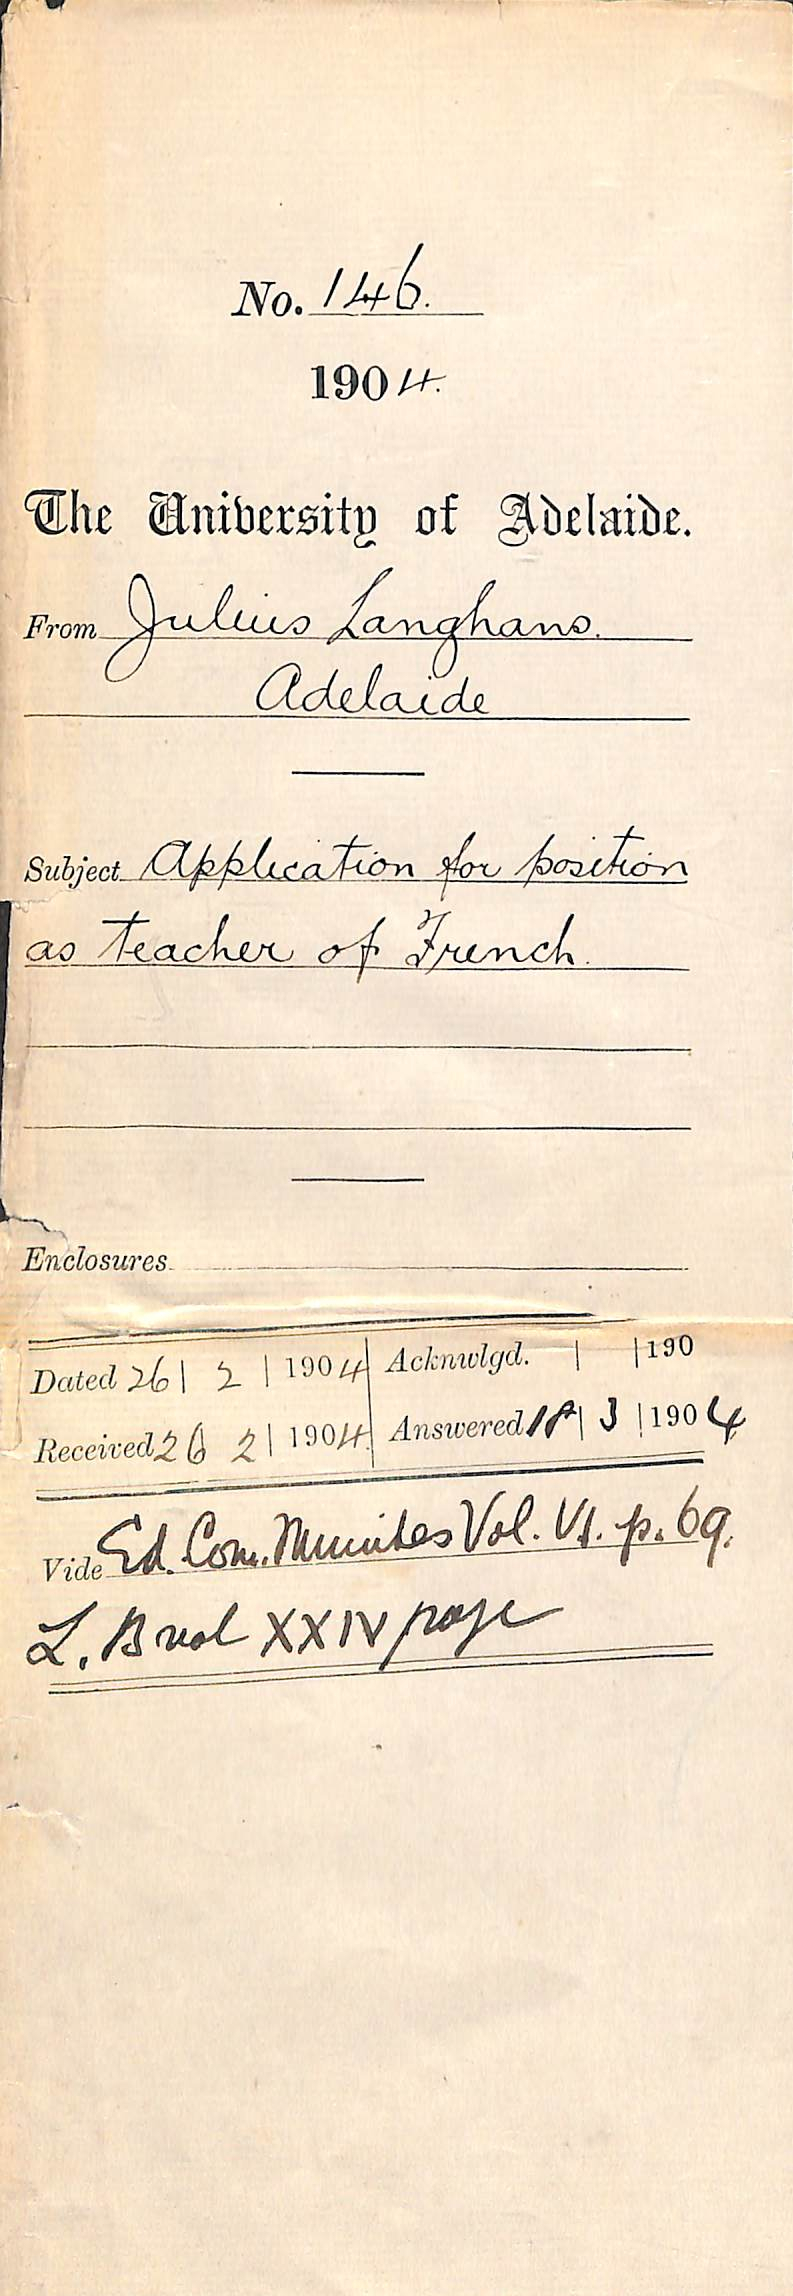 No. 146.
1904.
The University of Adelaide.
From Julius Langhans.
Adelaide
Subject Application for position
as teacher of French.
Enclosures
Dated 26 | 2 | 1904 Acknwlgd. | | 190
Received 26 2 | 1904. Answered 18 | 3 | 1904
Vide Ed. Com. Minutes Vol. VI. p. 69.
L. B vol XXIV page